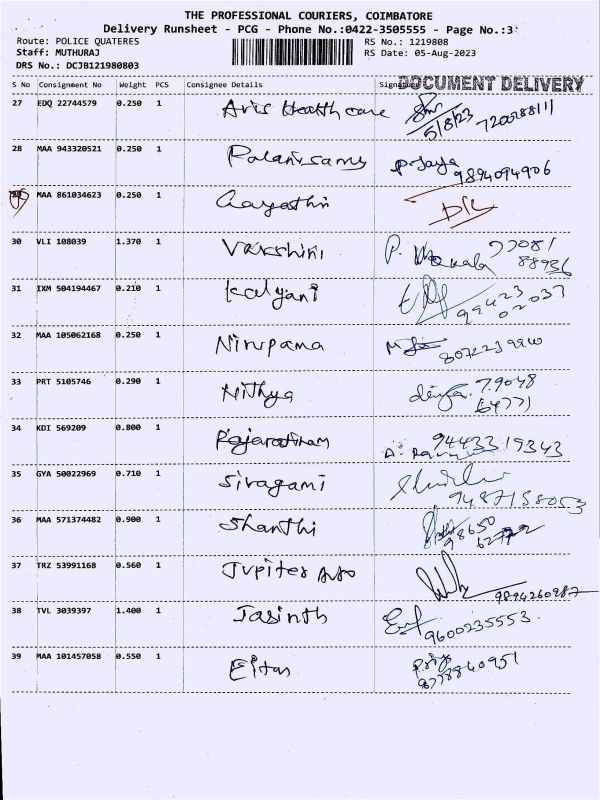 THE PROFESSIONAL COURIERS, COIMBATORE
Delivery Runsheet - PCG - Phone No.:0422-3505555 - Page No.:3
Route: POLICE QUATERES RS No.: 1219808
Staff: MUTHURAJ RS Date: 05-Aug-2023
DRS No.: DCJB121980803
DOCUMENT DELIVERY
S No Consignment No Weight PCS Consignee Details
27 EDQ 22744579 0.250 1 Aris Health care
5/8/23
28 MAA 943320521 0.250 1 Palanisamy P. Jaya
9894094906
29 MAA 861034623 0.250 1 Gayathri D/L
30 VLI 108039 1.370 1 Varshini P. 77081
88936
31 IXM 504194467 0.210 1 Kalyani 99423
02037
32 MAA 105062168 0.250 1 Nirupama
33 PRT 5105746 0.290 1 Nithya 79048
64771
34 KDI 569209 0.800 1 Rajarathinam 94433 19343
35 GYA 50022969 0.710 1 Sivagami
9487158053
36 MAA 571374482 0.900 1 Shanthi 98650
37 TRZ 53991168 0.560 1 Jupiter Auto
9894260987
38 TVL 3039397 1.400 1 Jasinth
9600235553
39 MAA 101457058 0.550 1 Priya
9778840951